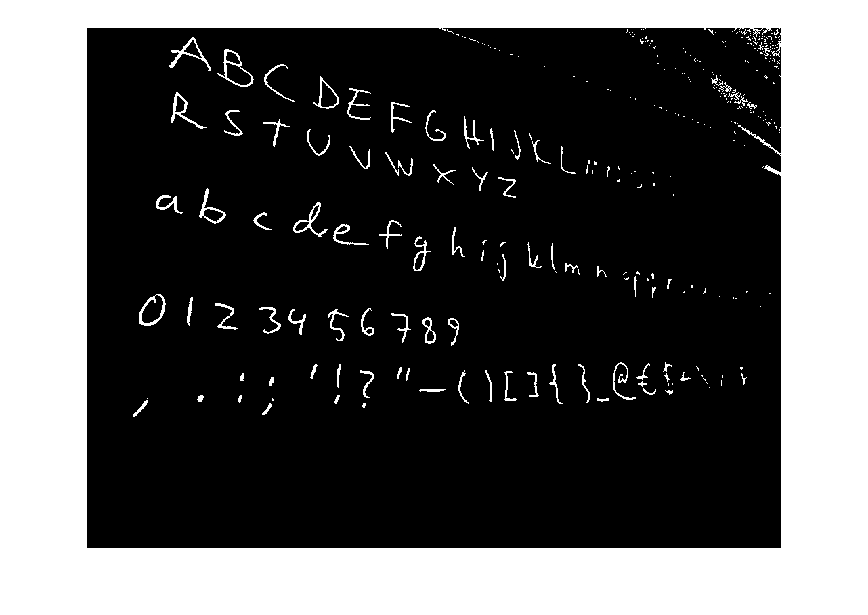 A B C D E F G H I J K L
R S T U V W X Y Z
a b c d e f g h i j k l m n
0 1 2 3 4 5 6 7 8 9
, . : ; ' ! ? " - ( ) [ ] { } _ @ € $